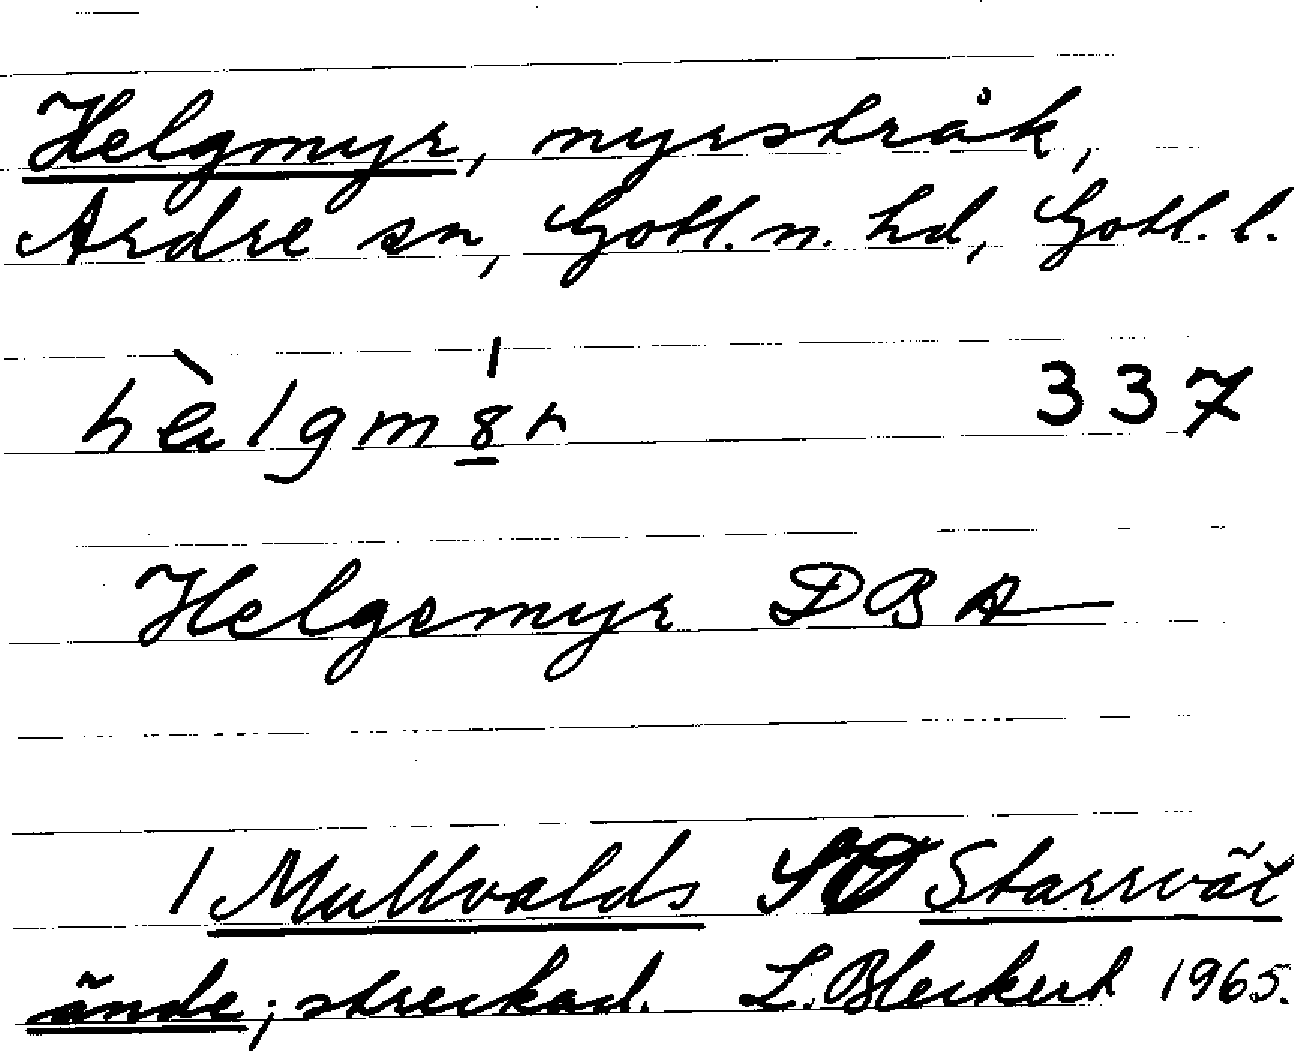 Helgmyr, myrstråk,
Ardre sn, Gotl. n. hd, Gotl. l.
337
Helgemyr DBA
1 Mullvalds SO Starrvät
ände; streckad. L. Bleckert 1965.